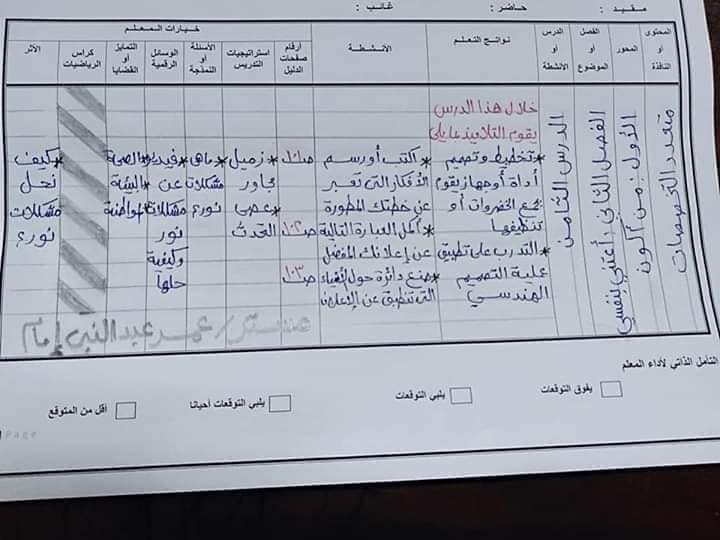 مقيد : حاضر : غائب :
خيارات المعلم
المحتوى أو النافذة
المحور
الفصل أو الموضوع
الدرس أو الأنشطة
نواتج التعلم
الأنشطة
أرقام صفحات الدليل
استراتيجيات التدريس
الأسئلة أو النمذجة
الوسائل الرقمية
التمايز أو القضايا
كراس الرياضيات
الأثر
متعدد التخصصات
الأول: من أكون
الفصل الثاني: أعتني بنفسي
الدرس الثامن
خلال هذا الدرس
يقوم التلاميذ بما يلي
* تخطيط وتصميم
أداة أو جهاز يقوم
بجمع الخضروات أو
تنظيفها
* التدرب على تطبيق
عملية التصميم
الهندسي
* اكتب أو رسم
الأفكار التى تعبر
عن خطتك المطورة
* أكمل العبارة التالية
عن إعلانك المفضل
* صنع دائرة حول الأشياء
التى تنطبق عن الإعلان
ص١٠١
ص١٠٢
ص١٠٣
* زميل
مجاور
* عصى
التحدث
* ماهى
مشكلات
نور؟
* فيديو
عن
مشكلات
نور
وكيفية
حلها
* الصحة
* البيئة
* المواطنة
* كيف
نحل
مشكلات
نور؟
مستر/ عمر عبد النبى إمام
التأمل الذاتي لأداء المعلم
يفوق التوقعات
يلبي التوقعات
يلبي التوقعات أحيانا
أقل من المتوقع
Page